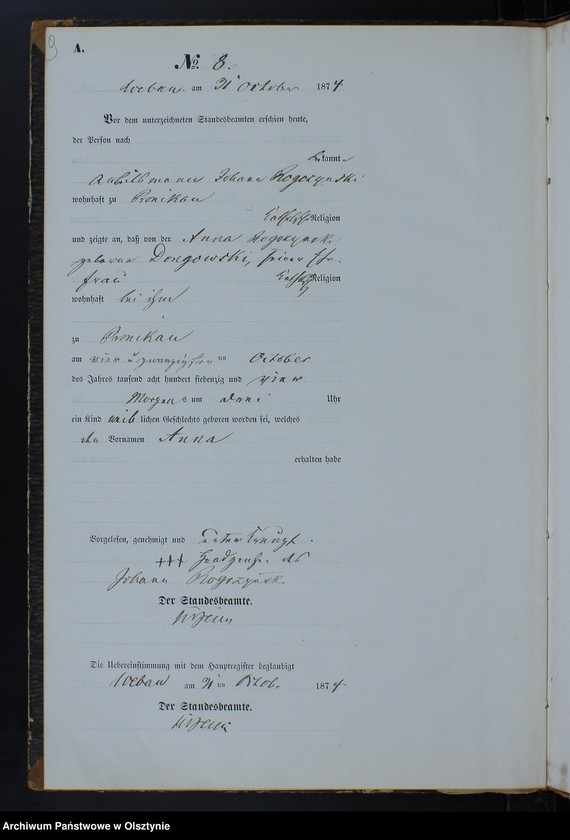 9
A.
No. 8.
am October 1874
Vor dem unterzeichneten Standesbeamten erschien heute,
der Person nach
bekannte
Johann Rogozynski
wohnhaft zu Pronikau
katholischer Religion
und zeigte an, daß von der Anna Rogozynsk.
geborene Dongowski, seiner Ehe-
frau Religion
wohnhaft bei ihm
zu Pronikau
am vier u zwanzigsten ten October
des Jahres tausend acht hundert siebenzig und vier
Morgens um drei Uhr
ein Kind weiblichen Geschlechts geboren worden sei, welches
den Vornamen Anna
erhalten habe
Vorgelesen, genehmigt und unterkreuzt.
+++ Handzeichen des
Johann Rogozynsk.
Der Standesbeamte.
Die Uebereinstimmung mit dem Hauptregister beglaubigt
am ten Octob. 1874
Der Standesbeamte.
Archiwum Państwowe w Olsztynie